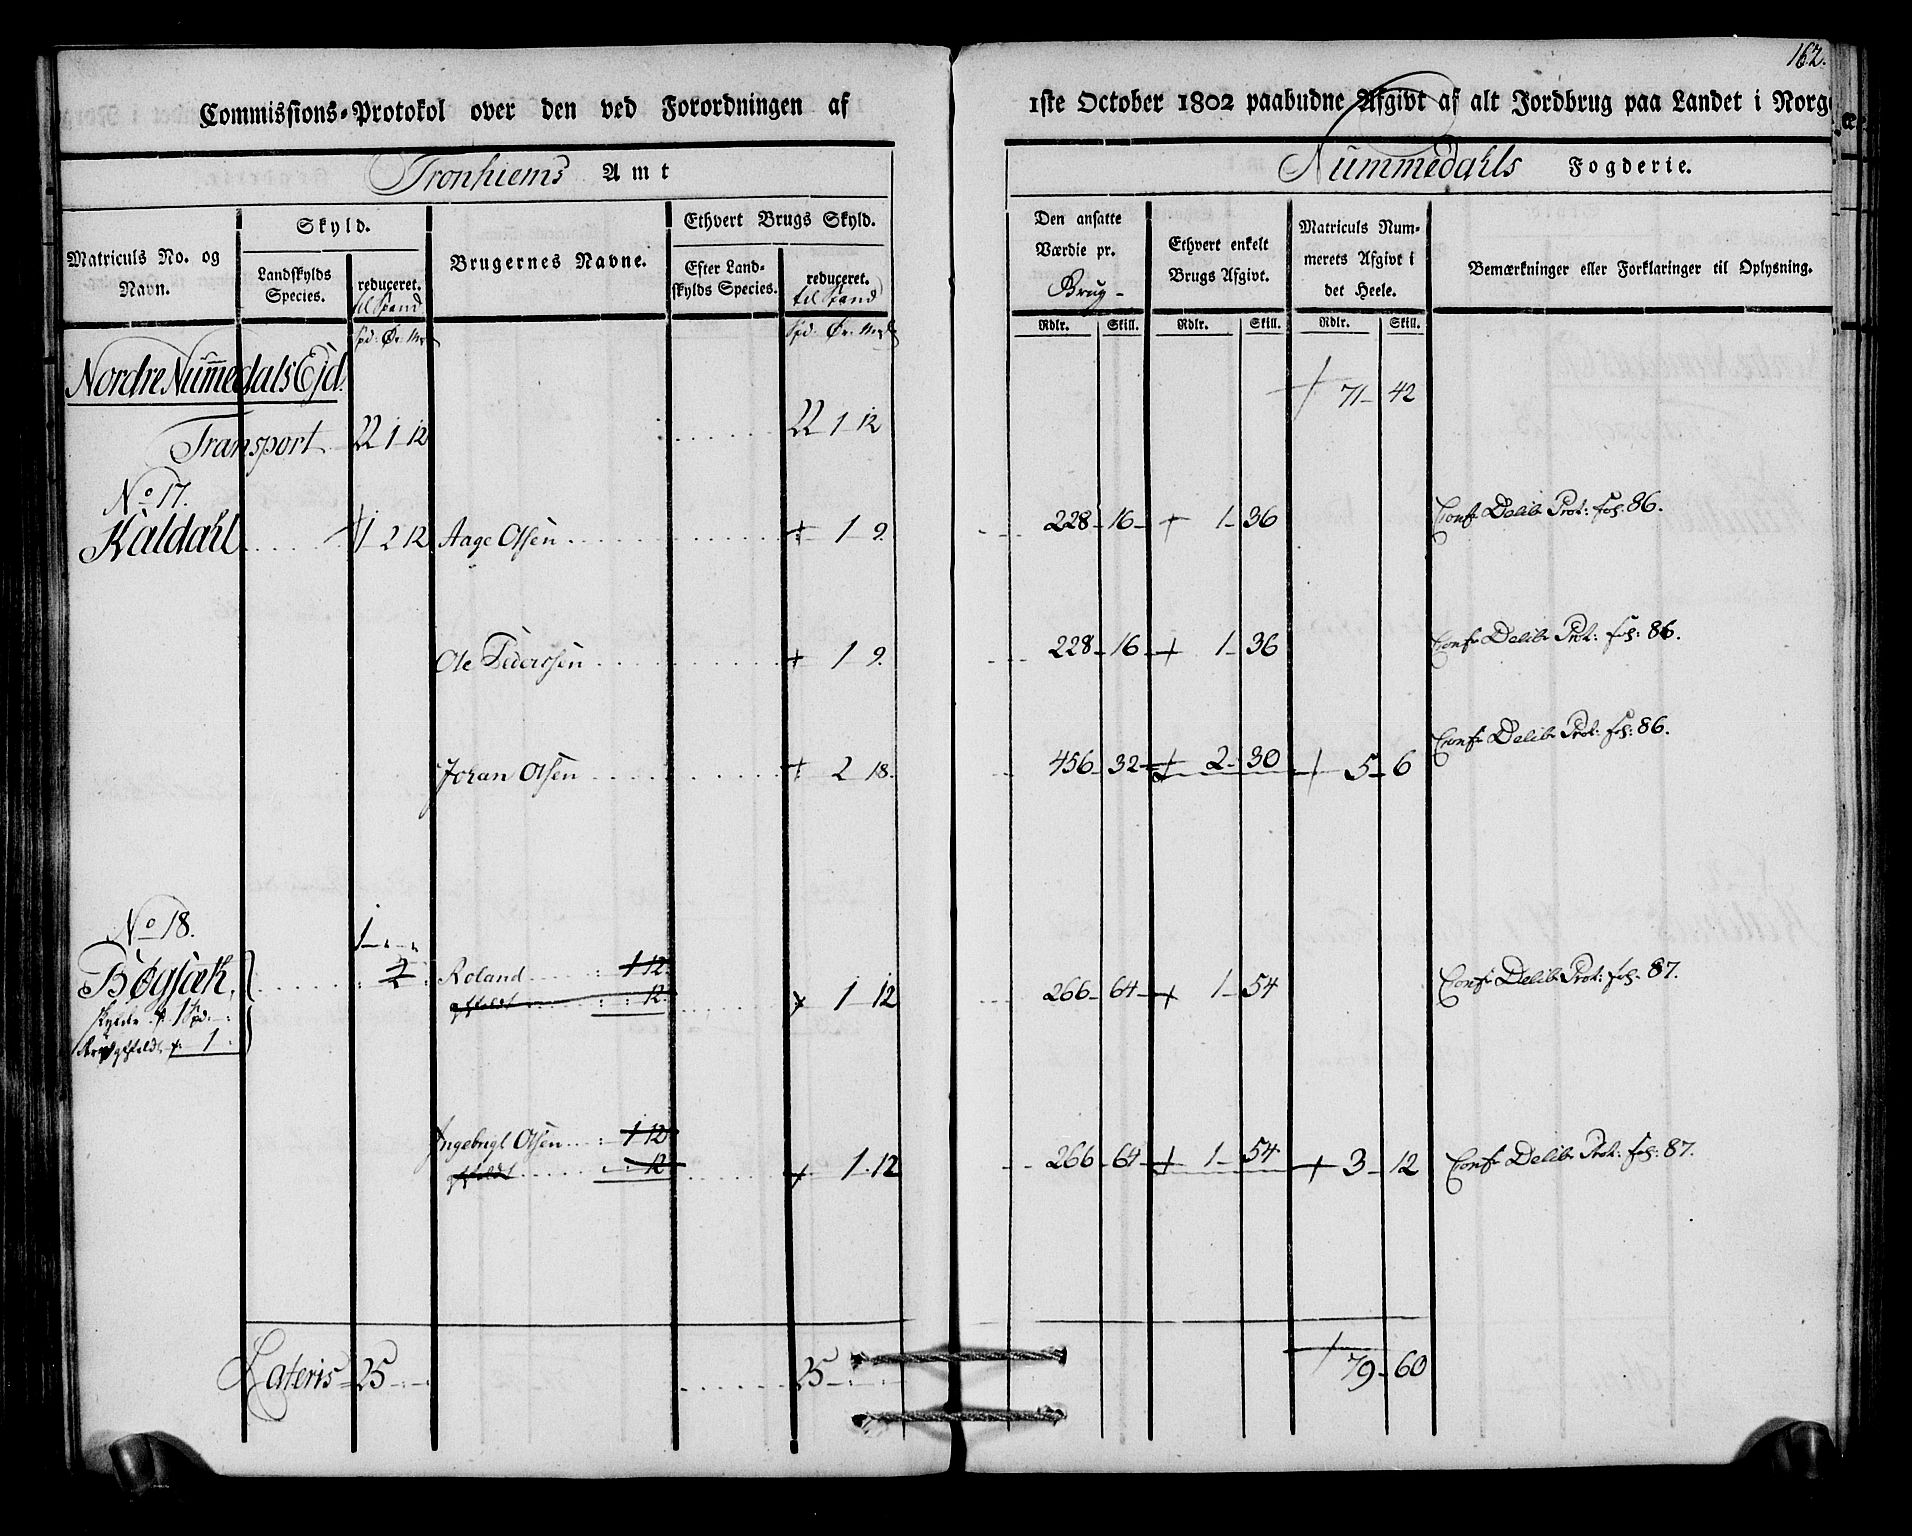 162.
Commissions-Protokol over den ved Forordningen af 1ste October 1802 paabudne Afgivt af alt Jordbrug paa Landet i Norg
Tronhiems Amt
Nummedahls Fogderie.
Matriculs No. og Navn.
Skyld.
Landskylds Species.
reduceret. til Spand
Brugernes Navne.
Ethvert Brugs Skyld.
Efter Land-skylds Species.
reduceret. til Spand
Den ansatte Værdie pr. Brug
Ethvert enkelt Brugs Afgivt.
Matriculs Num-merets Afgivt i det Heele.
Bemærkninger eller Forklaringer til Oplysning.
Rdlr. Skill. Rdlr. Skill. Rdlr. Skill.
Nordre Nummedals Ejd.
71 - 42
Transport 22 1 12 22 1 12
No 17.
Kaldahl 1 2 12 Aage Olsen + 1 9. 228 - 16 - + 1 - 36 Conf. Delib. Prot: fol: 86.
Ole Pederssen + 1 9. 228 - 16 - + 1 - 36 Conf. Delib. Prot: fol: 86.
Johan Olsen + 2 18. 456 - 32 - + 2 - 30 + 5 - 6 Conf. Delib. Prot: fol: 86.
No 18.
1
Roland 1 12
12 1 12 266 - 64 - + 1 - 54 Conf. Delib. Prot: fol: 87.
1
Ingebrigt Olsen 1 12
12 + 1 - 12 266 - 64 - + 1 - 54 + 3 - 12 Conf. Delib. Prot: fol: 87.
Lateris 25 25 79 - 60